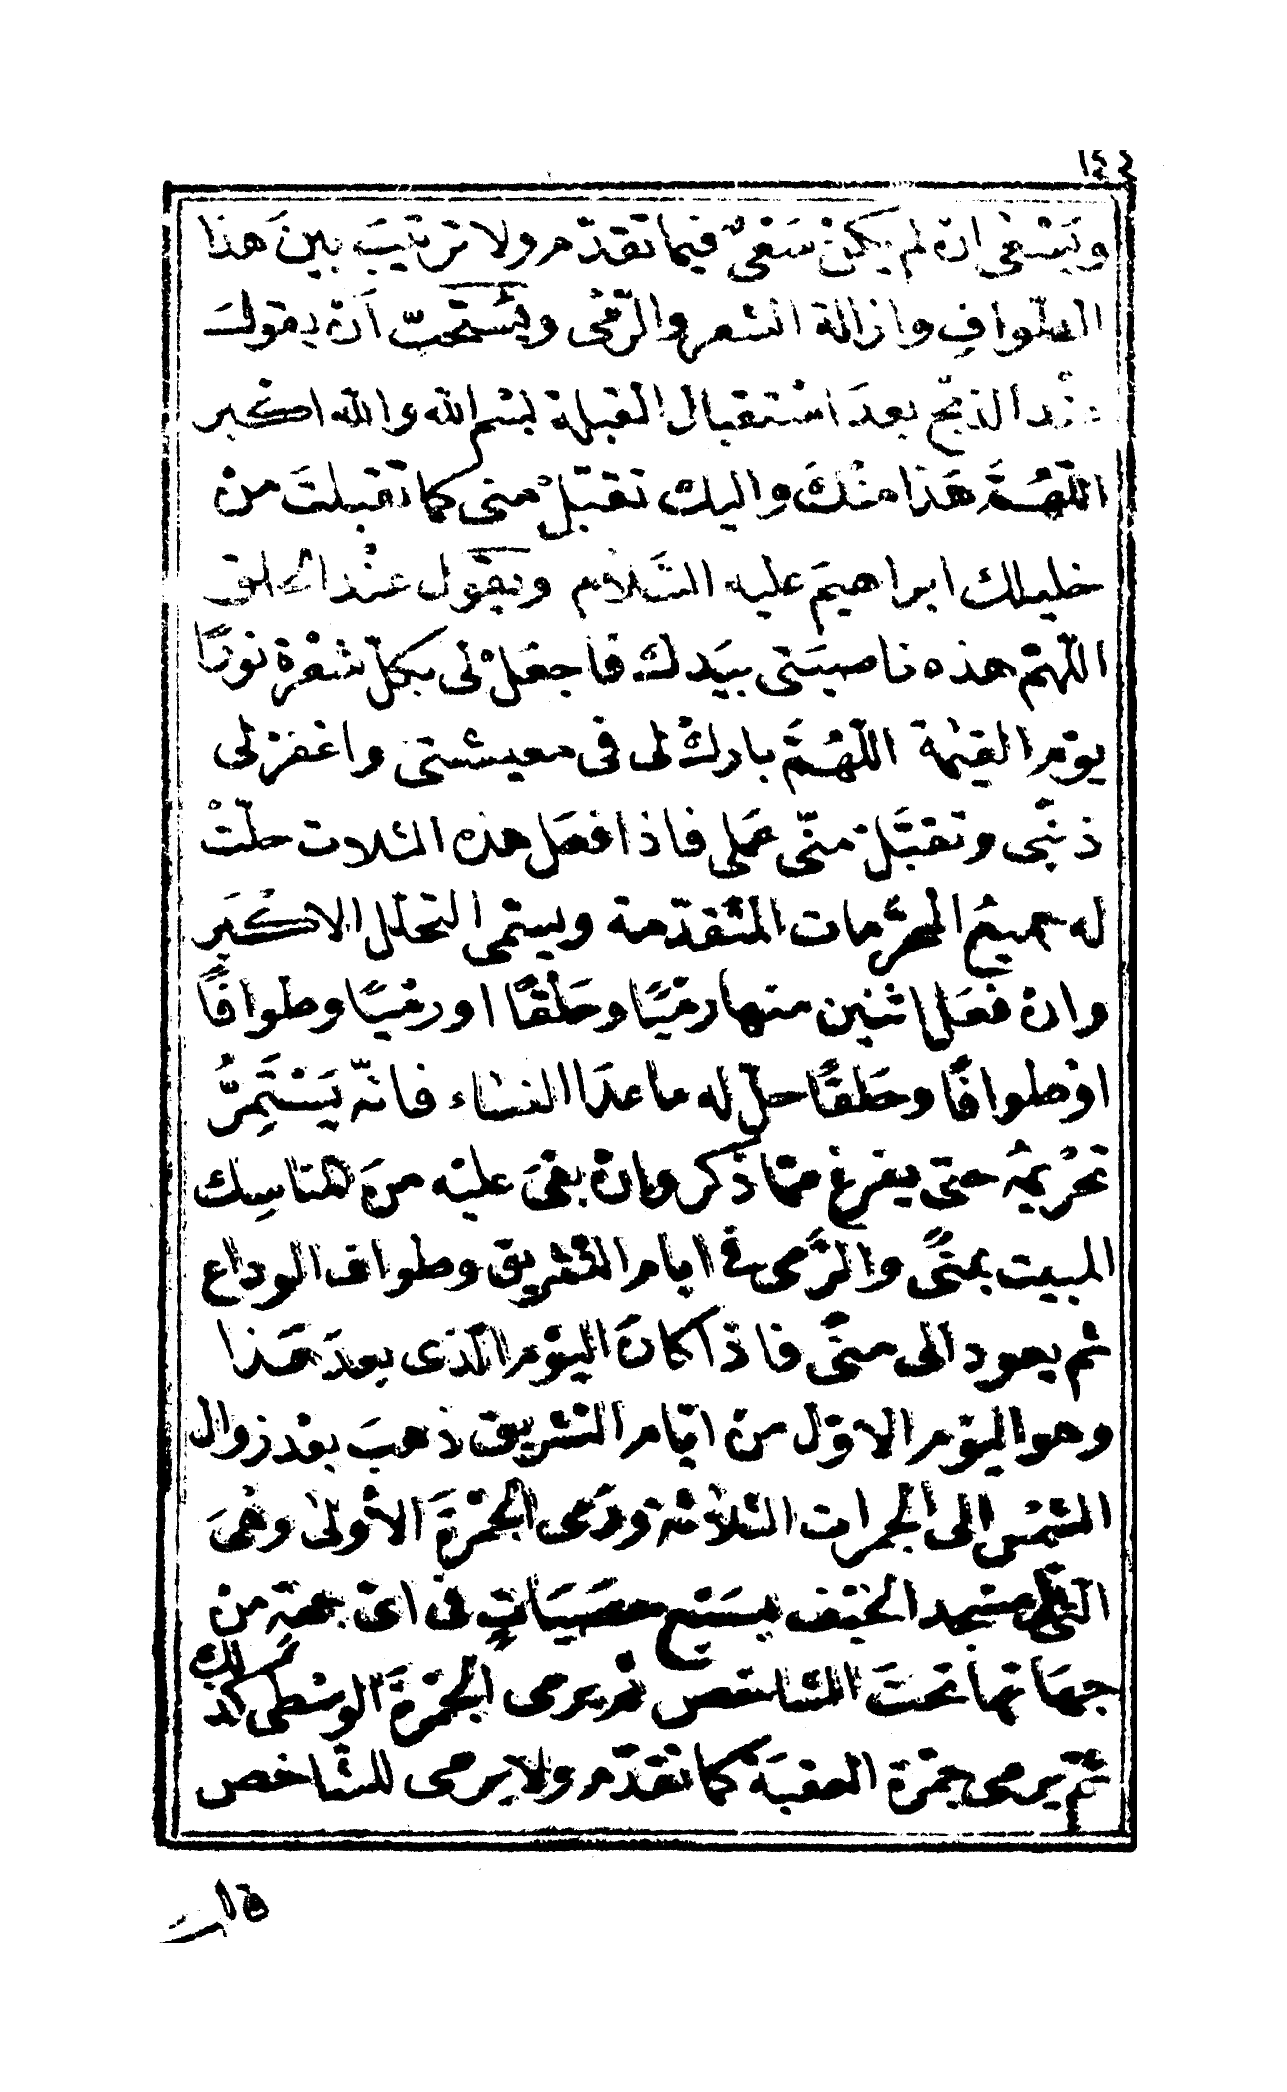 ١٤٤
ويَسْعٰى ان لم يكنْ سَعْىٌ فيما تقدّم ولا ترتيبَ بينَ هذا
الطّوافِ وازالة الشعر والرّمْى ويُسْتحبّ أن يقولَ
عنْد الذبْح بعدَ اسْتقبال القبلة بسْم الله والله اكبر
اللّهُمَّ هَذا منْكَ واليك تقبّلْ منى كما تقبلتَ من
خليلك ابراهيمَ عليه السَّلام ويقول عنْد الحلق
اللّهمّ هذه ناصيَتى بيَدك فاجعَلْ لى بكلّ شعْرة نورًا
يوْم القيٰمة اللّهُمَّ باركْ لى فى معيشتى واغفرْ لى
ذنْبى وتقبَّلْ منّى عَملى فاذا فعَل هذه الثلاث حلّتْ
له جميعُ المحرَّمات المتْقدّمة ويسمّى التحلل الاكْبَر
وان فَعَل اثنين منها رمْيًا وحَلْقًا او رمْيًا وطوافًا
اوْ طوافًا وحَلقًا حلّ له ما عدَا النساء فانّه يَسْتَمِرُّ
تحْريمُه حتى يفرغ ممّا ذكر وان بقىَ عليْه منَ المناسِك
المبيت بمنًى والرَّمى فى ايام التشريق وطواف الوداع
ثم يعود الى منًى فاذا كانَ اليوْم الذى بعدَ هَذا
وهو اليوْم الاوّل من ايّام التشريق ذهبَ بعْد زوال
الشمْس الى الجمرات الثلاثة ورَمى الجمْرةَ الأولىٰ وهْىَ
التى تلى مسْجد الخيْف بسَبْع حصَيَاتٍ فى اىّ جهة من
جهَاتها تحتَ الشاخص ثم يرمى الجمْرةَ الوسْطى كذلك
ثمّ يرمى جمْرة العقبَة كما تقدّم ولا يرمى للشّاخص